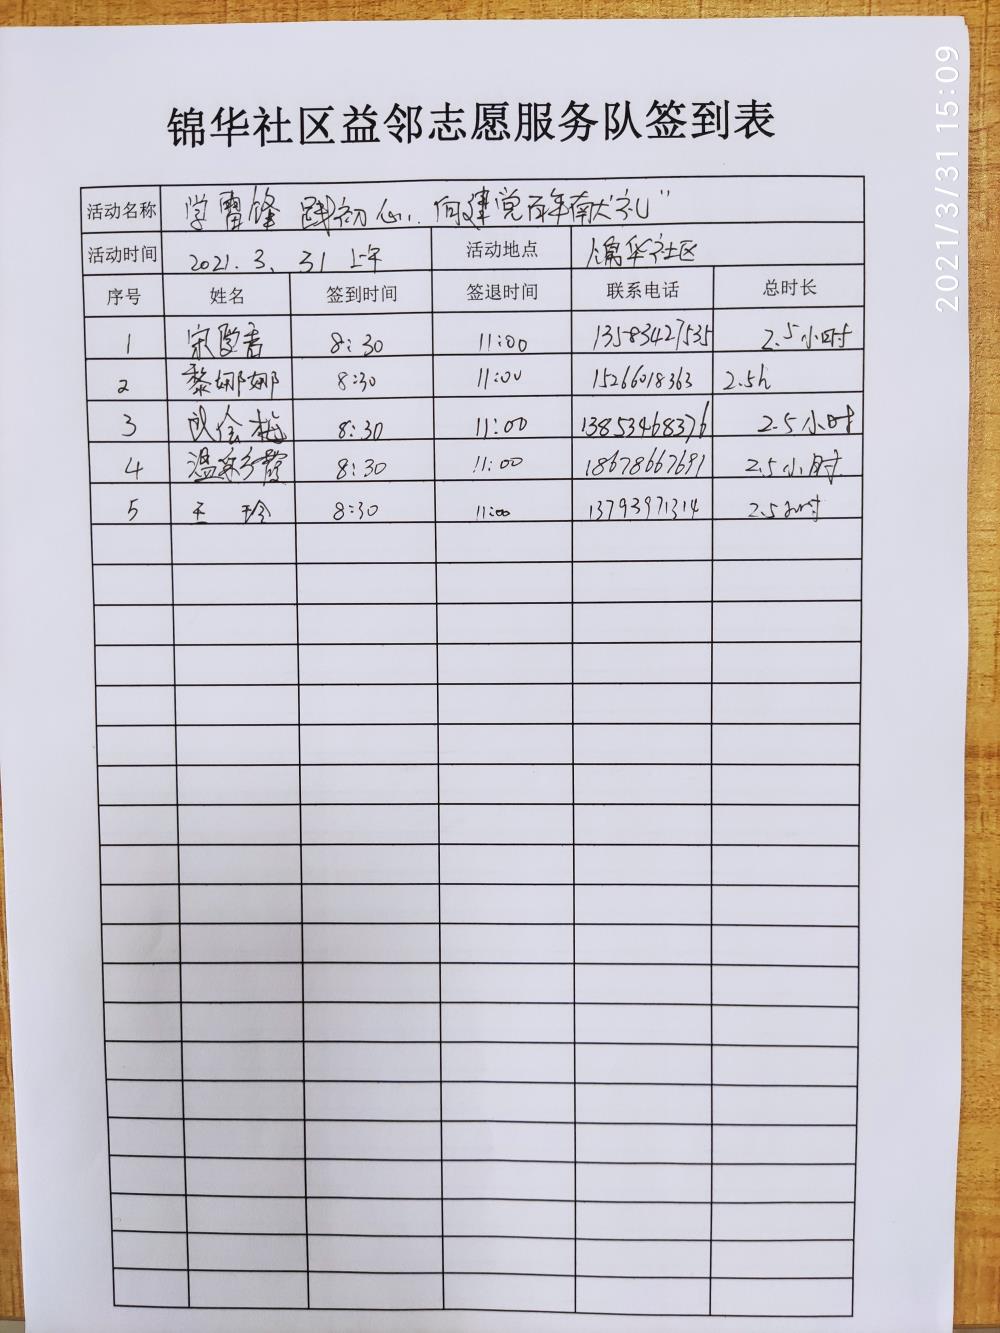 2021/3/31 15:09
锦华社区益邻志愿服务队签到表
活动名称 学雷锋 践初心,向建党百年献大礼"
活动时间 2021.3.31 上午 活动地点 锦华社区
序号 姓名 签到时间 签退时间 联系电话 总时长
1 宋 8:30 11:00 13583427535 2.5小时
2 黎娜娜 8:30 11:00 15266018363 2.5h
3 8:30 11:00 13853468376 2.5小时
4 温彩霞 8:30 11:00 18678667691 2.5小时
5 王玲 8:30 11:00 13793971314 2.5小时